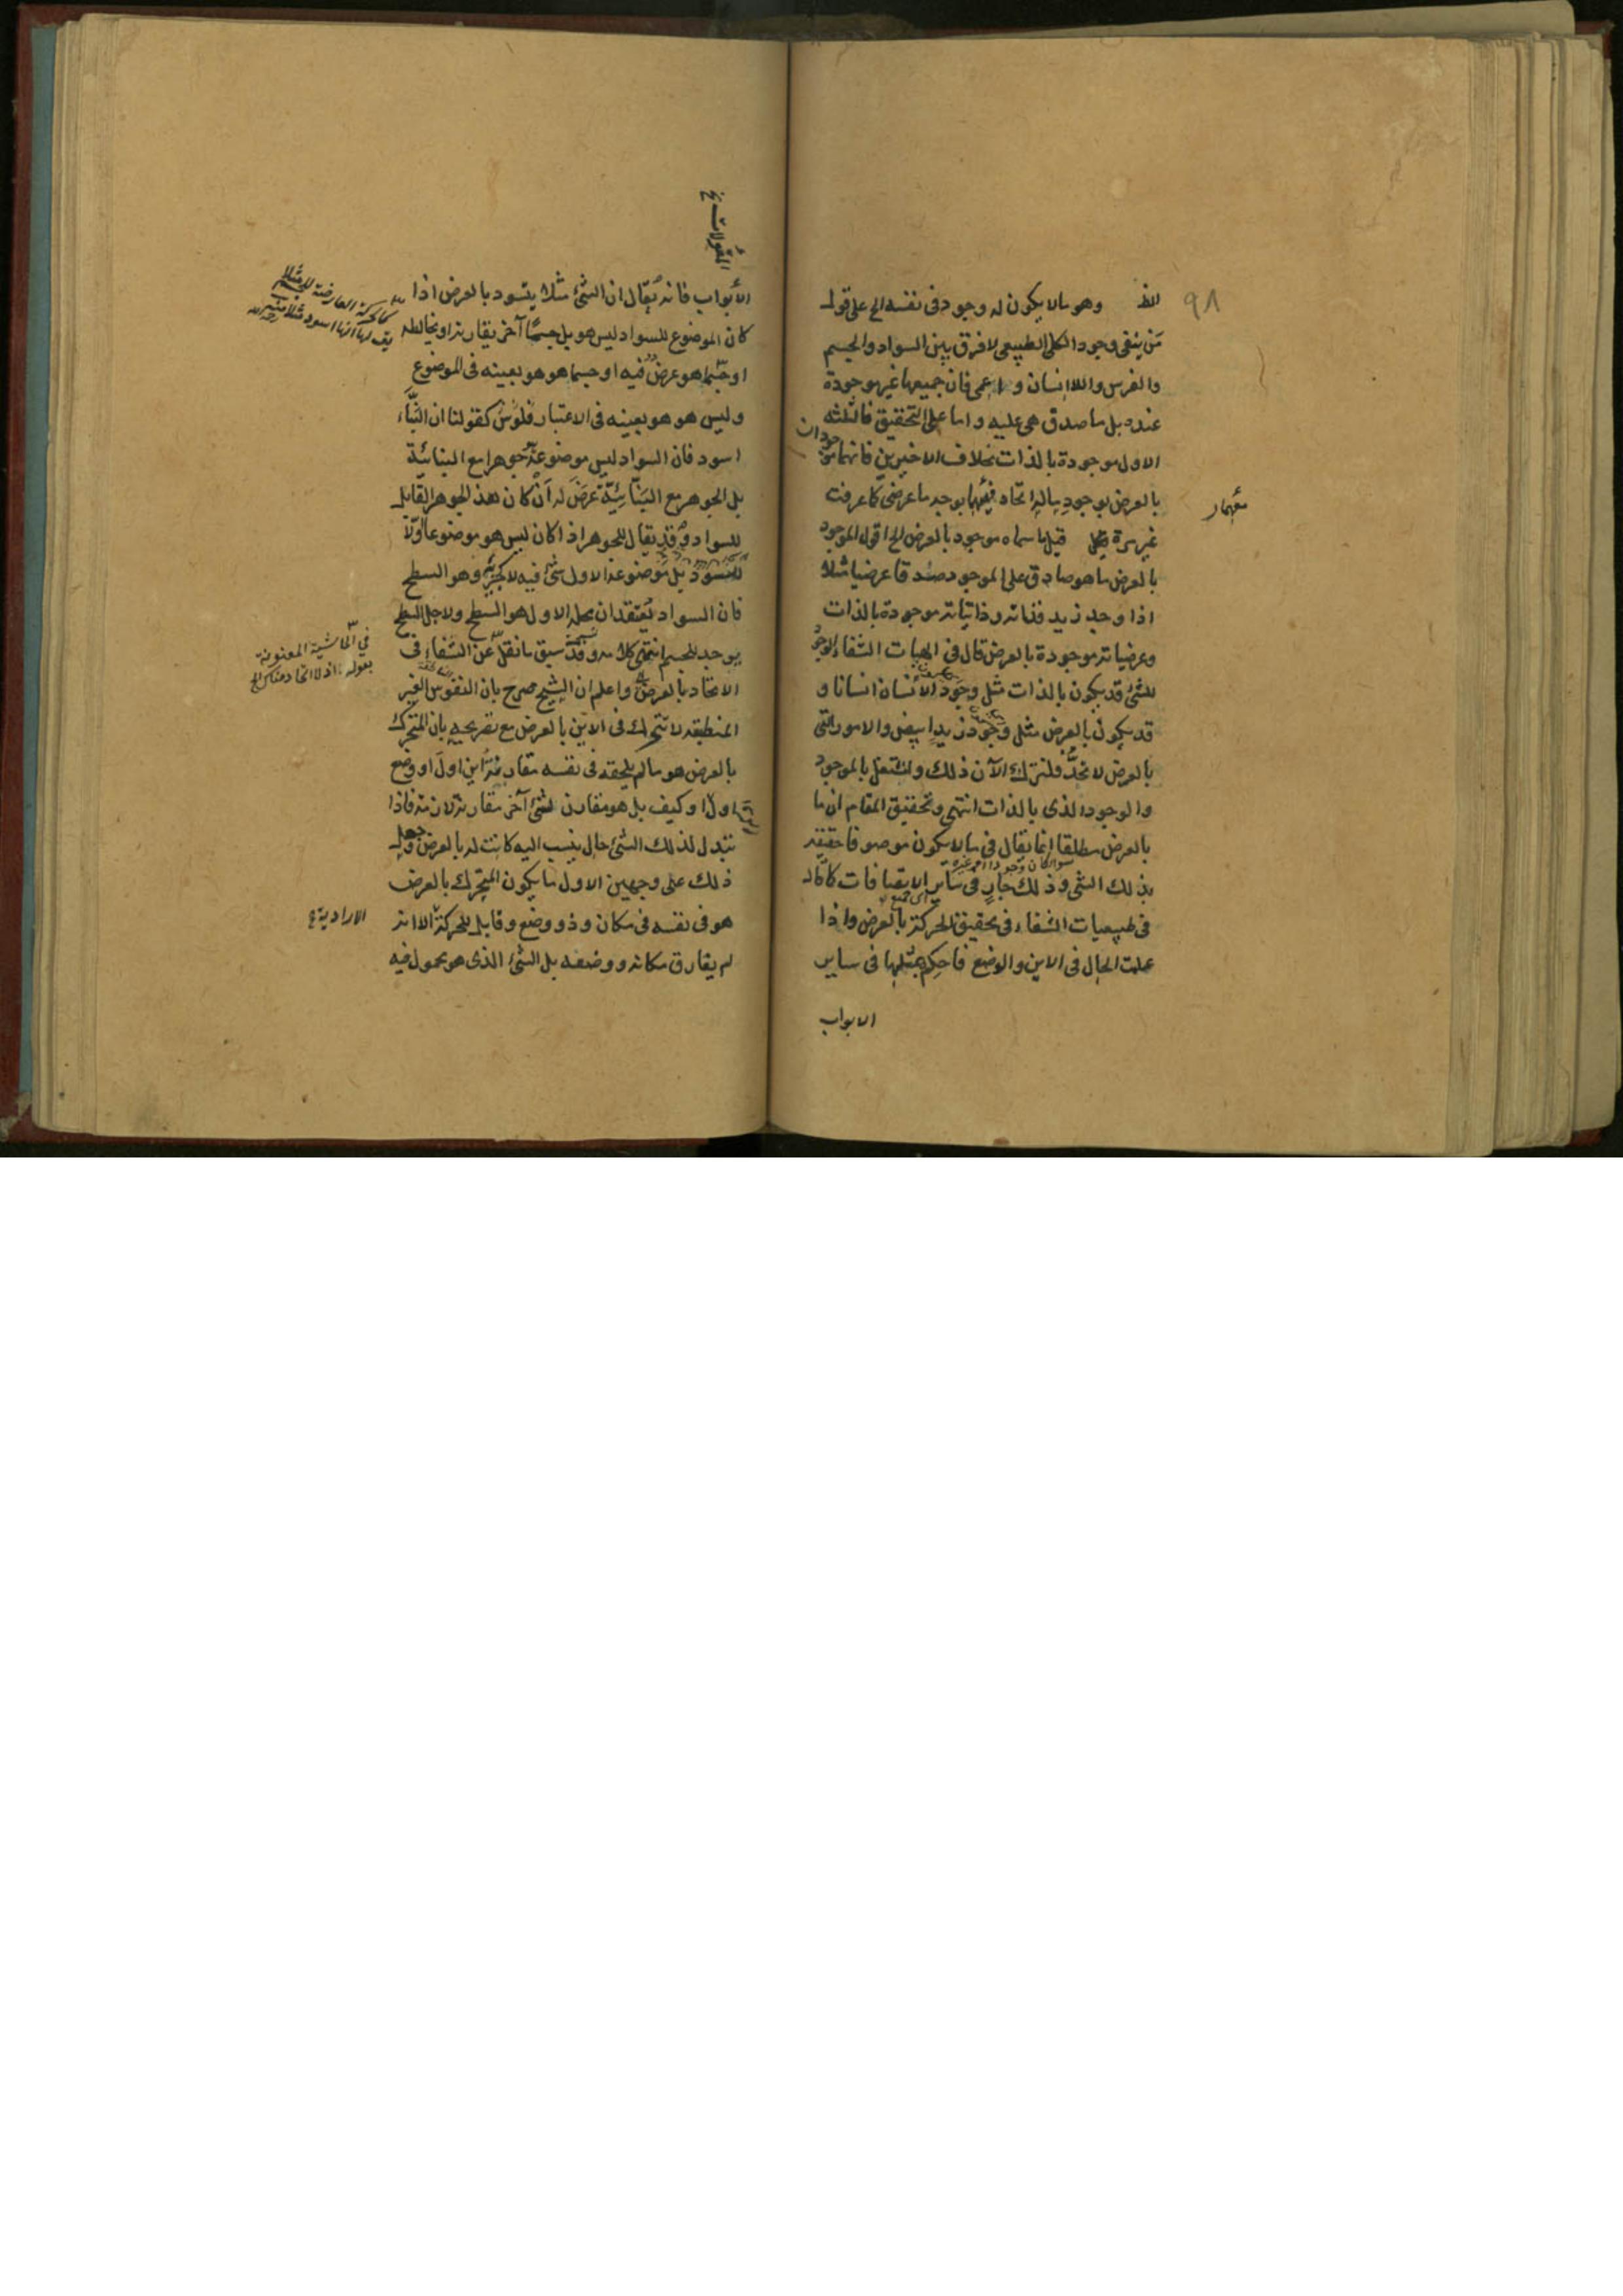 ٩٨
الخ وهو ما لا يكون له وجود في نفسه الخ على قول
من ينفى وجود الكلى الطبيعى لا فرق بين السواد والجسم
والفرس واللاانسان و الاعمى فان جميعها غير موجودة
عنده بل ما صدق هى عليه واما على التحقيق فالثلثة
الاول موجودة بالذات بخلاف الاخيرين فانهما موجودان
بالعرض بوجود ماله اتحاد معهما بوجه ما عرضى كما عرفت
معهما
غير مرة قيل ما سماه موجود بالعرض الخ اقول الموجود
بالعرض ما هو صادق على الموجود صدقا عرضيا مثلا
اذا وجد زيد فذاته وذاتياته موجودة بالذات
وعرضياته موجودة بالعرض قال في الهيات الشفاء الوجود
للشئ قد يكون بالذات مثل وجود الانسان انسانا و
قد يكون بالعرض مثل وجود زيد ابيض والامور التى
بالعرض لا تحد فلنترك الآن ذلك ولنشتغل بالموجود
والوجود الذى بالذات انتهى وتحقيق المقام ان ما
بالعرض مطلقا انما يقال في ما لا يكون موصوفا حقيقة
سواء كان وجودا او غيره
بذلك الشئ وذلك جار في ساير الاتصافات كما قال
في طبيعيات الشفاء في تحقيق الحركة بالعرض واذا
علمت الحال في الاين والوضع فاحكم بمثلها في ساير
الابواب
المقولات خ
الأبواب فانه يقال ان الشئ مثلا يتسود بالعرض اذا
كان الموضوع للسواد ليس هو بل جسمًا آخر يقارنه او يخالطه
او جسما هو عرض فيه او جسما هو هو بعينه في الموضوع
وليس هو هو بعينه في الاعتبار كقولنا ان البنّاء
اسود فان السواد ليس موضوعه جوهرا مع البنائية
بل الجوهر مع البنّائيّة عرض له أن كان هذا الجوهر القابل
للسواد وقد يقال للجوهر اذا كان ليس هو موضوعا اوّلا
للتسوّد بل موضوعه الاول شئ فيه لا كجزئه وهو السطح
فان السواد يعتقد ان محله الاول هو السطح ولاجل السطح
يوجد للجسم انتهى كلامه وقد سبق ما نقل عن الشفاء في
الاتحاد بالعرض واعلم ان الشيخ صرح بان النفوس الغير
المنطبقة لا تتحرك في الاين بالعرض مع تصريحه بان المتحرك
بالعرض هو ما لم يلحقه في نفسه مفارقة اين اول او وضع
اول او كيف بل هو مقارن لشئ آخر مقارنة لازمة فاذا
تبدل لذلك الشئ حال ينسب اليه كانت له بالعرض وجعل
ذلك على وجهين الاول ما يكون المتحرك بالعرض
هو في نفسه في مكان وذو وضع وقابل للحركة الا انه
لم يفارق مكانه ووضعه بل الشئ الذى هو محمول فيه
كالحركة العارضة للجسم مثلا
في الحاشية المعنونة
بقوله اذ لا اتحاد هناك الخ
الارادية